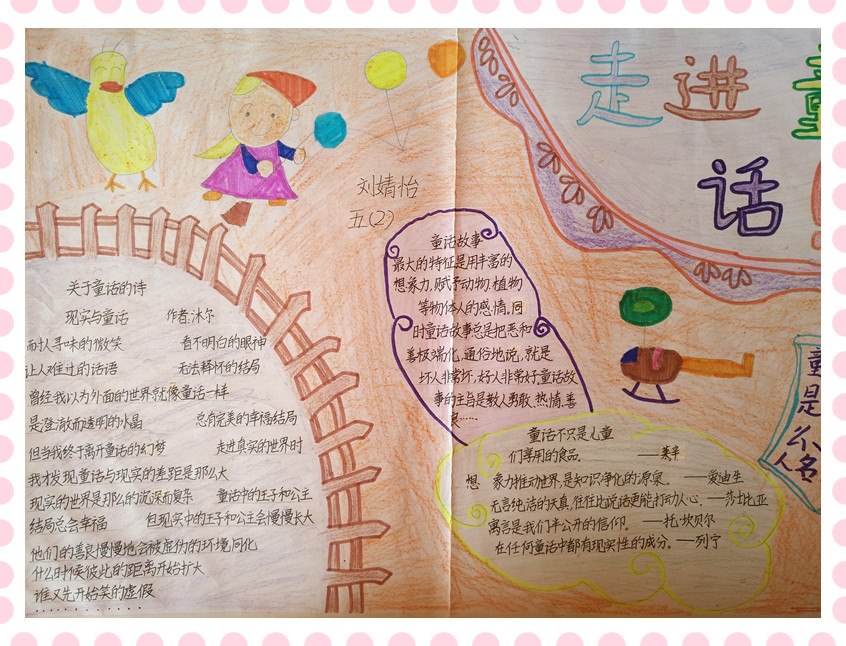 走进童
话
刘婧怡
五(2)
关于童话的诗
现实与童话 作者:沐尔
耐人寻味的微笑 看不明白的眼神
让人难过的话语 无法释怀的结局
曾经我以为外面的世界就像童话一样
是澄澈而透明的水晶 总有完美的幸福结局
但当我终于离开童话的幻梦 走进真实的世界时
我才发现童话与现实的差距是那么大
现实的世界是那么的沉深而复杂 童话中的王子和公主
结局总会幸福 但现实中的王子和公主会慢慢长大
他们的善良慢慢地会被虚伪的环境同化
什么时候彼此的距离开始扩大
谁又先开始笑的虚假
童话故事
最大的特征是用丰富的
想象力,赋予动物,植物
等物体人的感情,同
时童话故事总是把恶和
善极端化,通俗地说,就是
坏人非常坏,好人非常好童话故
事的主旨是教人勇敢、热情、善
良……
童话不只是儿童
们享用的食品。 ——莱辛
想象力推动世界,是知识净化的源泉。 ——爱迪生
无言纯洁的天真,往往比说话更能打动人心。——莎士比亚
寓言是我们半公开的信仰。 ——托·坎贝尔
在任何童话中都有现实性的成分。——列宁
童
是
人
名